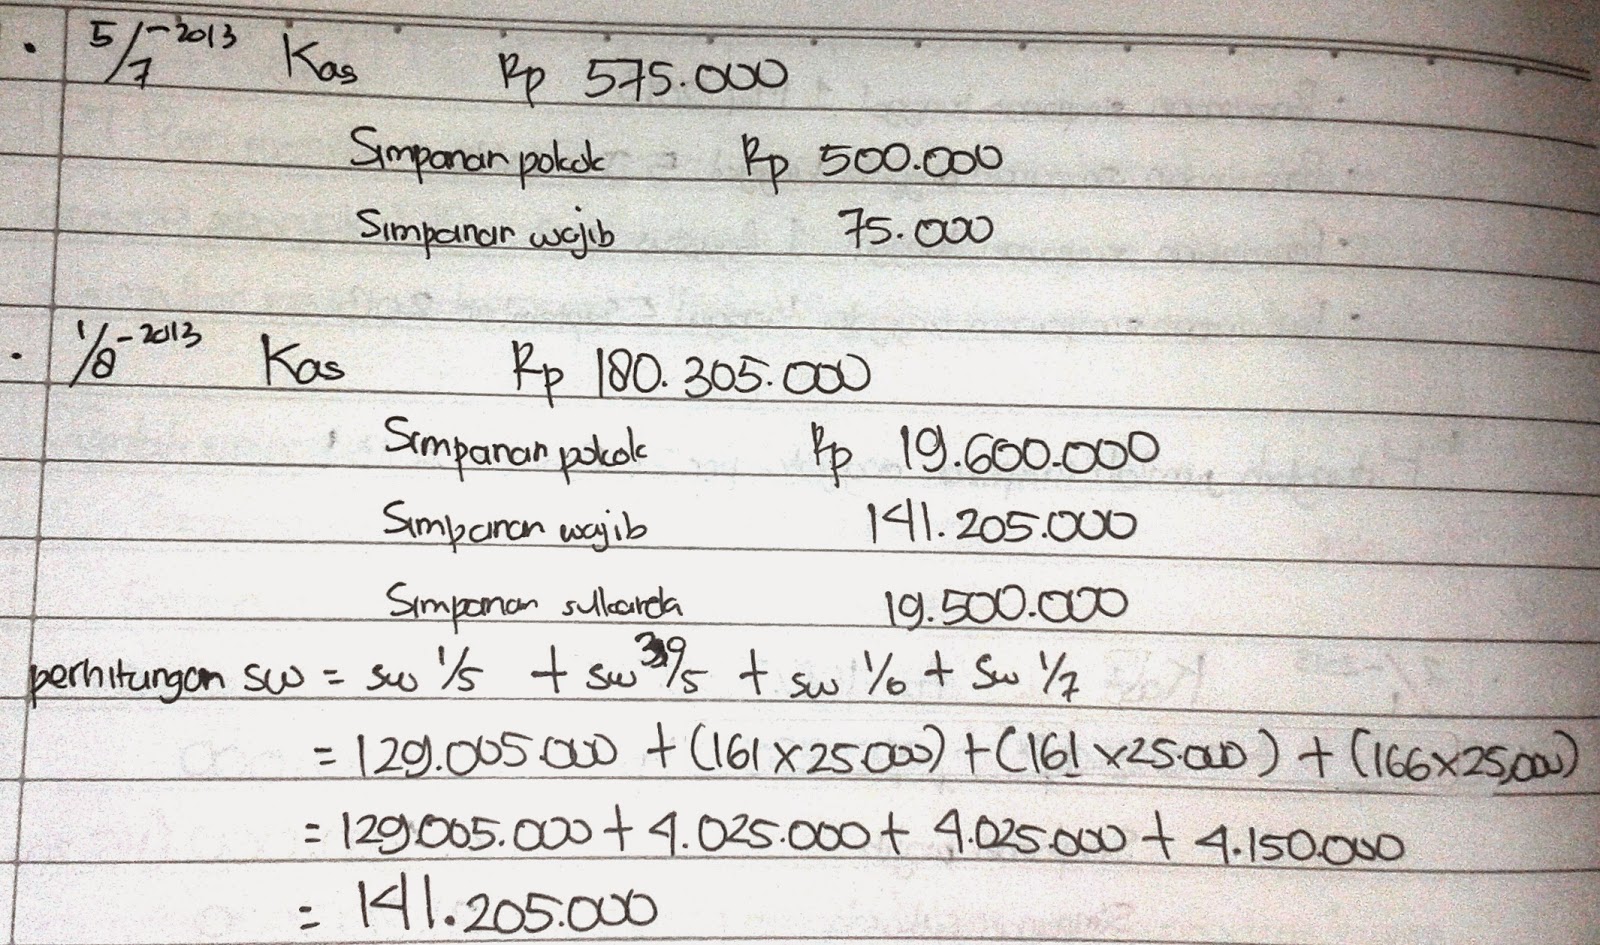 5/7-2013 Kas Rp 575.000
Simpanan pokok Rp 500.000
Simpanan wajib 75.000
1/8-2013 Kas Rp 180.305.000
Simpanan pokok Rp 19.600.000
Simpanan wajib 141.205.000
Simpanan sukarela 19.500.000
perhitungan SW = SW 1/5 + SW 30/5 + SW 1/6 + SW 1/7
= 129.005.000 + (161 x 25.000) + (161 x 25.000) + (166 x 25.000)
= 129.005.000 + 4.025.000 + 4.025.000 + 4.150.000
= 141.205.000